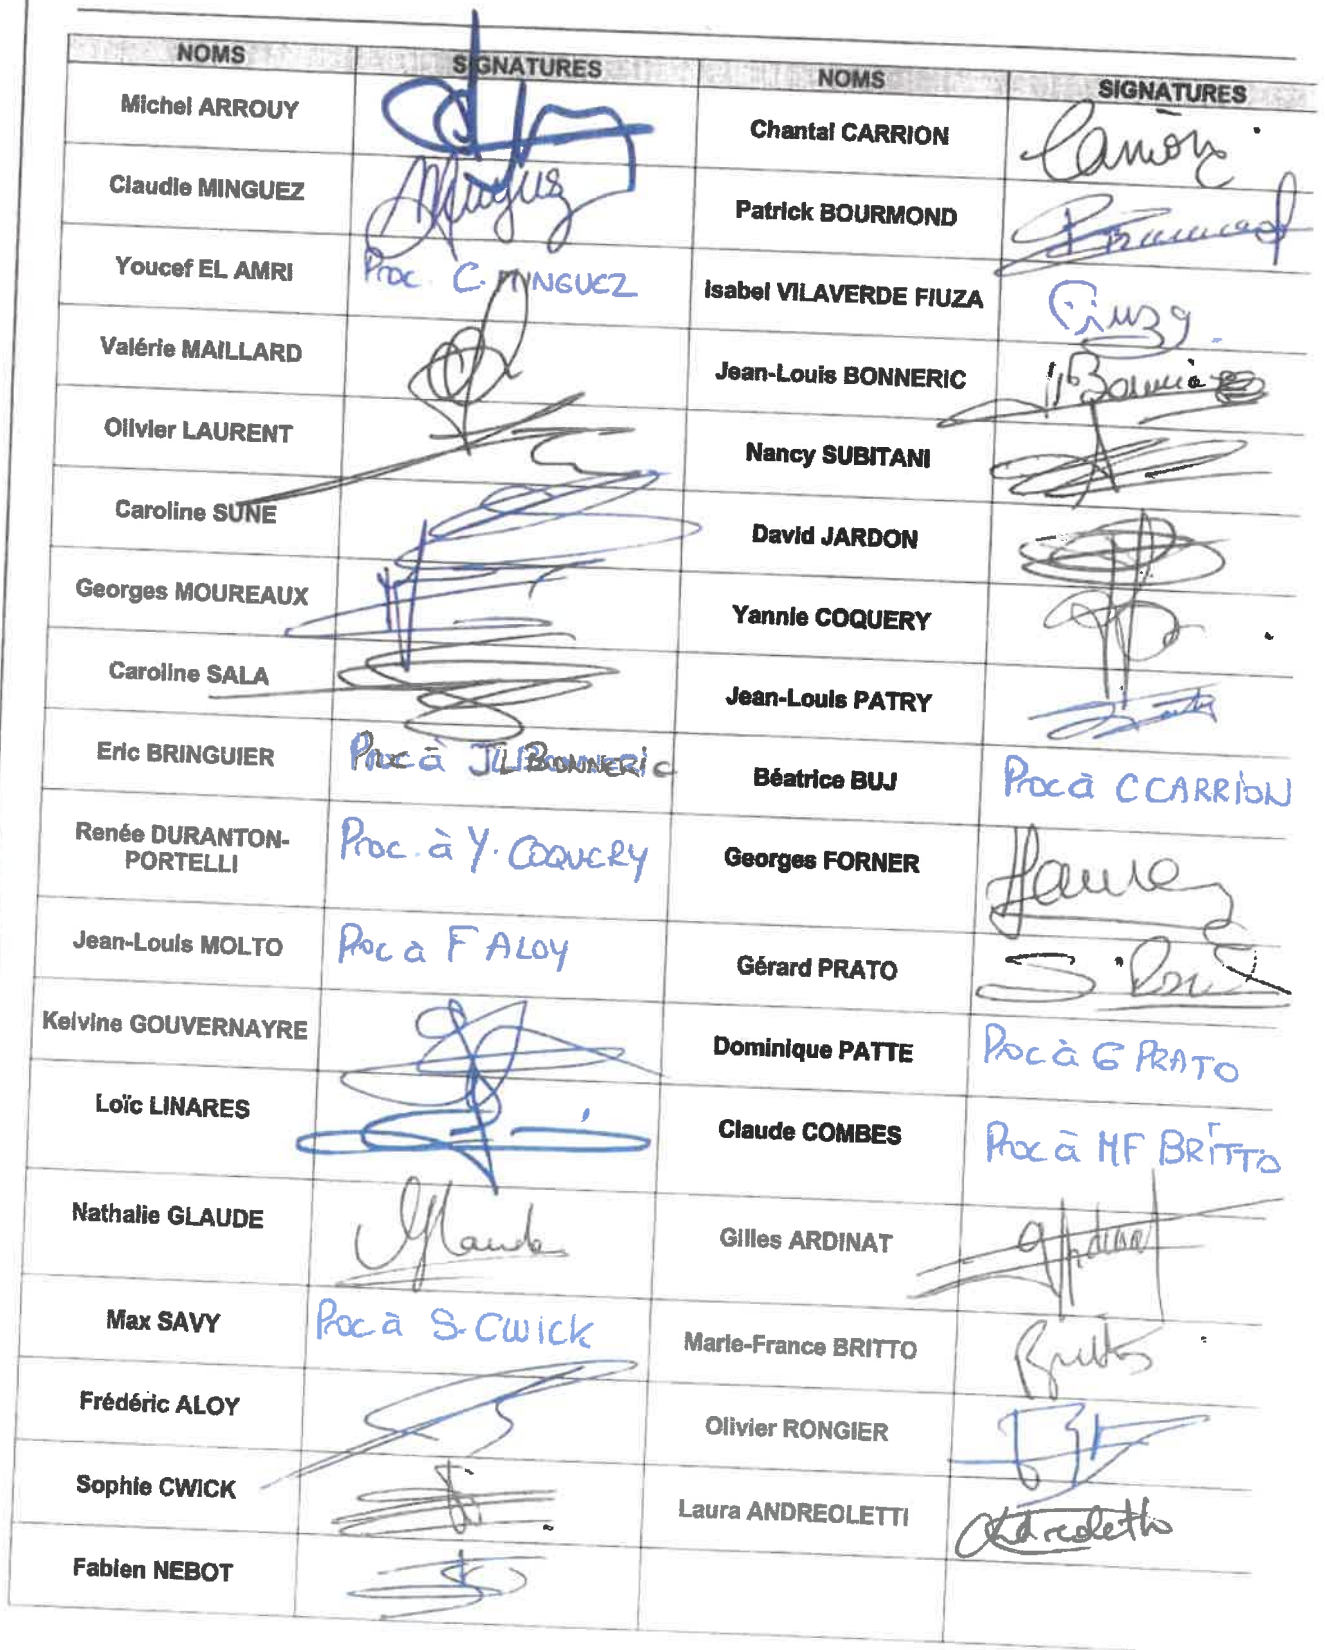 NOMS SIGNATURES NOMS SIGNATURES
Michel ARROUY Chantal CARRION Carrion
Claudie MINGUEZ Minguez Patrick BOURMOND
Youcef EL AMRI Proc. C. MINGUEZ Isabel VILAVERDE FIUZA Fiuza
Valérie MAILLARD Jean-Louis BONNERIC
Olivier LAURENT Nancy SUBITANI
Caroline SUNE David JARDON
Georges MOUREAUX Yannie COQUERY
Caroline SALA Jean-Louis PATRY
Eric BRINGUIER Proc à JL BONNERIC Béatrice BUJ Proc à C CARRION
Renée DURANTON-
PORTELLI Proc. à Y. COQUERY Georges FORNER
Jean-Louis MOLTO Proc à F ALOY Gérard PRATO
Kelvine GOUVERNAYRE Dominique PATTE Proc à G PRATO
Loïc LINARES Claude COMBES Proc à MF BRITTO
Nathalie GLAUDE Glaude Gilles ARDINAT Ardinat
Max SAVY Proc à S. CWICK Marie-France BRITTO Britto
Frédéric ALOY Olivier RONGIER
Sophie CWICK Laura ANDREOLETTI Andreoletti
Fabien NEBOT